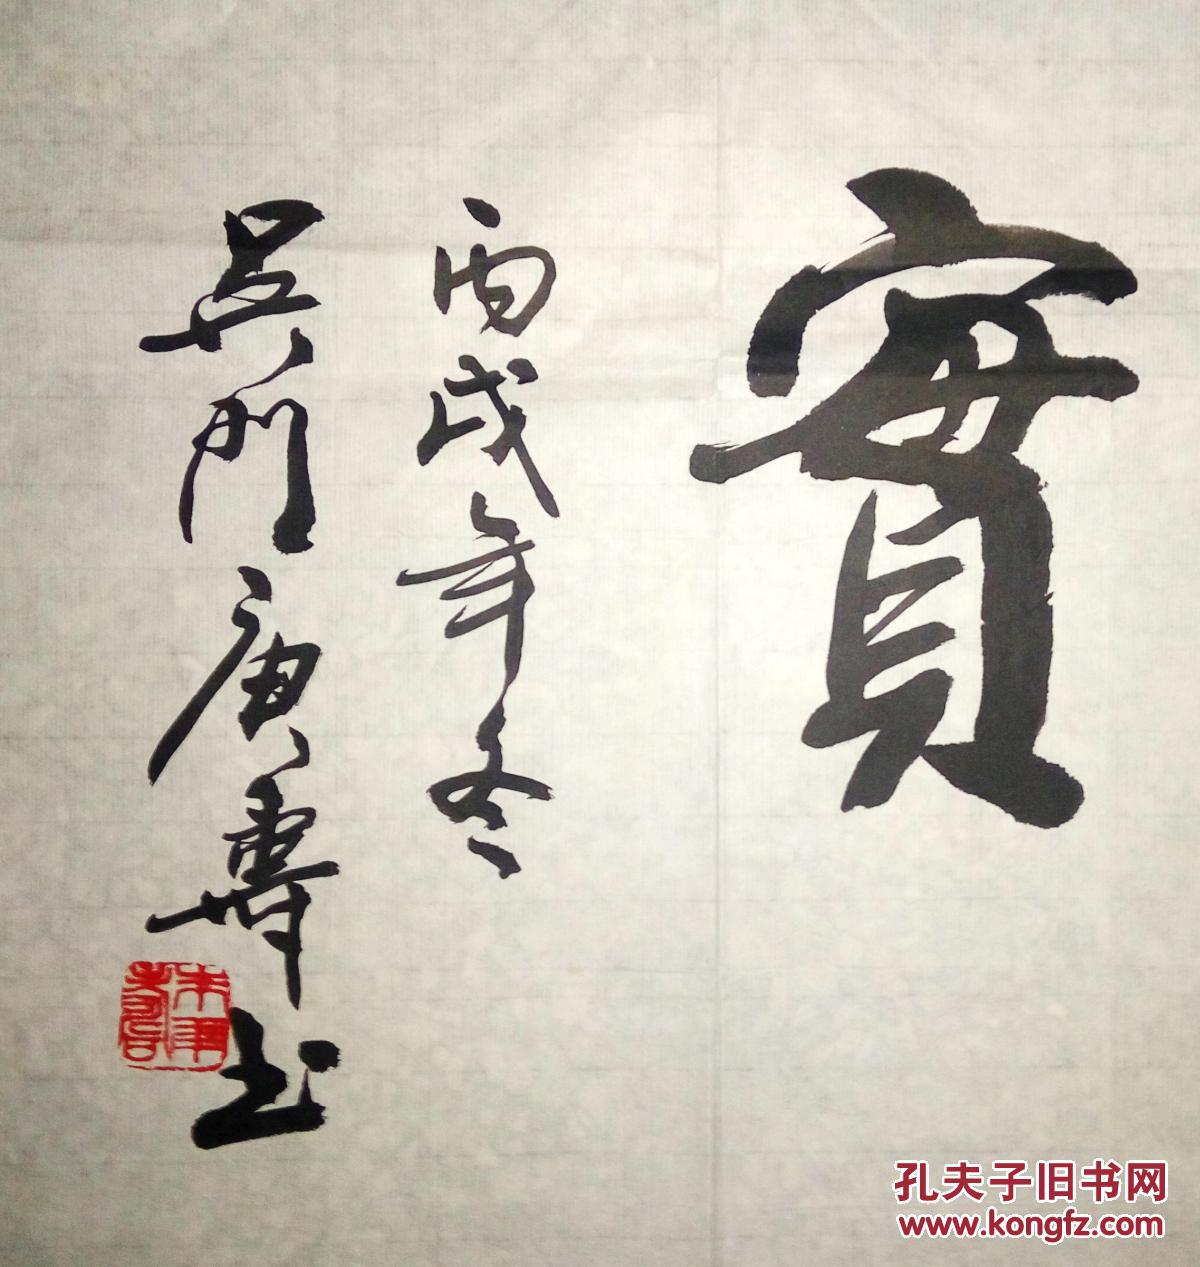 實
丙戌年冬
吴門庚壽书
朱庚壽
孔夫子旧书网
www.kongfz.com